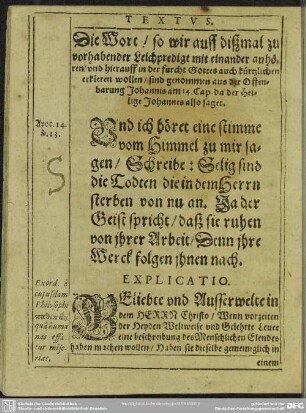 TEXTVS.
Die Wort / so wir auff dißmal zu
vorhabender Leichpredigt mit einander anhö-
ren / vnd hierauff in der furcht Gottes auch kürtzlichen
erkleren wollen / sind genommen aus der Offen-
barung Johannis am 14. Cap. da der Hei-
lige Johannes also saget.
Apoc. 14.
& 13.
Vnd ich höret eine stimme
vom Himmel zu mir sa-
gen / Schreibe: Selig sind
die Todten die in dem Herrn
sterben von nu an. Ja der
Geist spricht / daß sie ruhen
von jhrer Arbeit / Denn jhre
Werck folgen jhnen nach.
EXPLICATIO.
Exord. à
cujusdem
philosophi
GEliebte vnd Ausserwelte in
dem HERRN Christo / Wenn vorzeiten
der Heyden Weltweise vnd Gelehrte Leute
eine beschreibung des Menschlichen Elendes
haben machen wollen / Haben sie dieselbe gemeiniglich in
einem